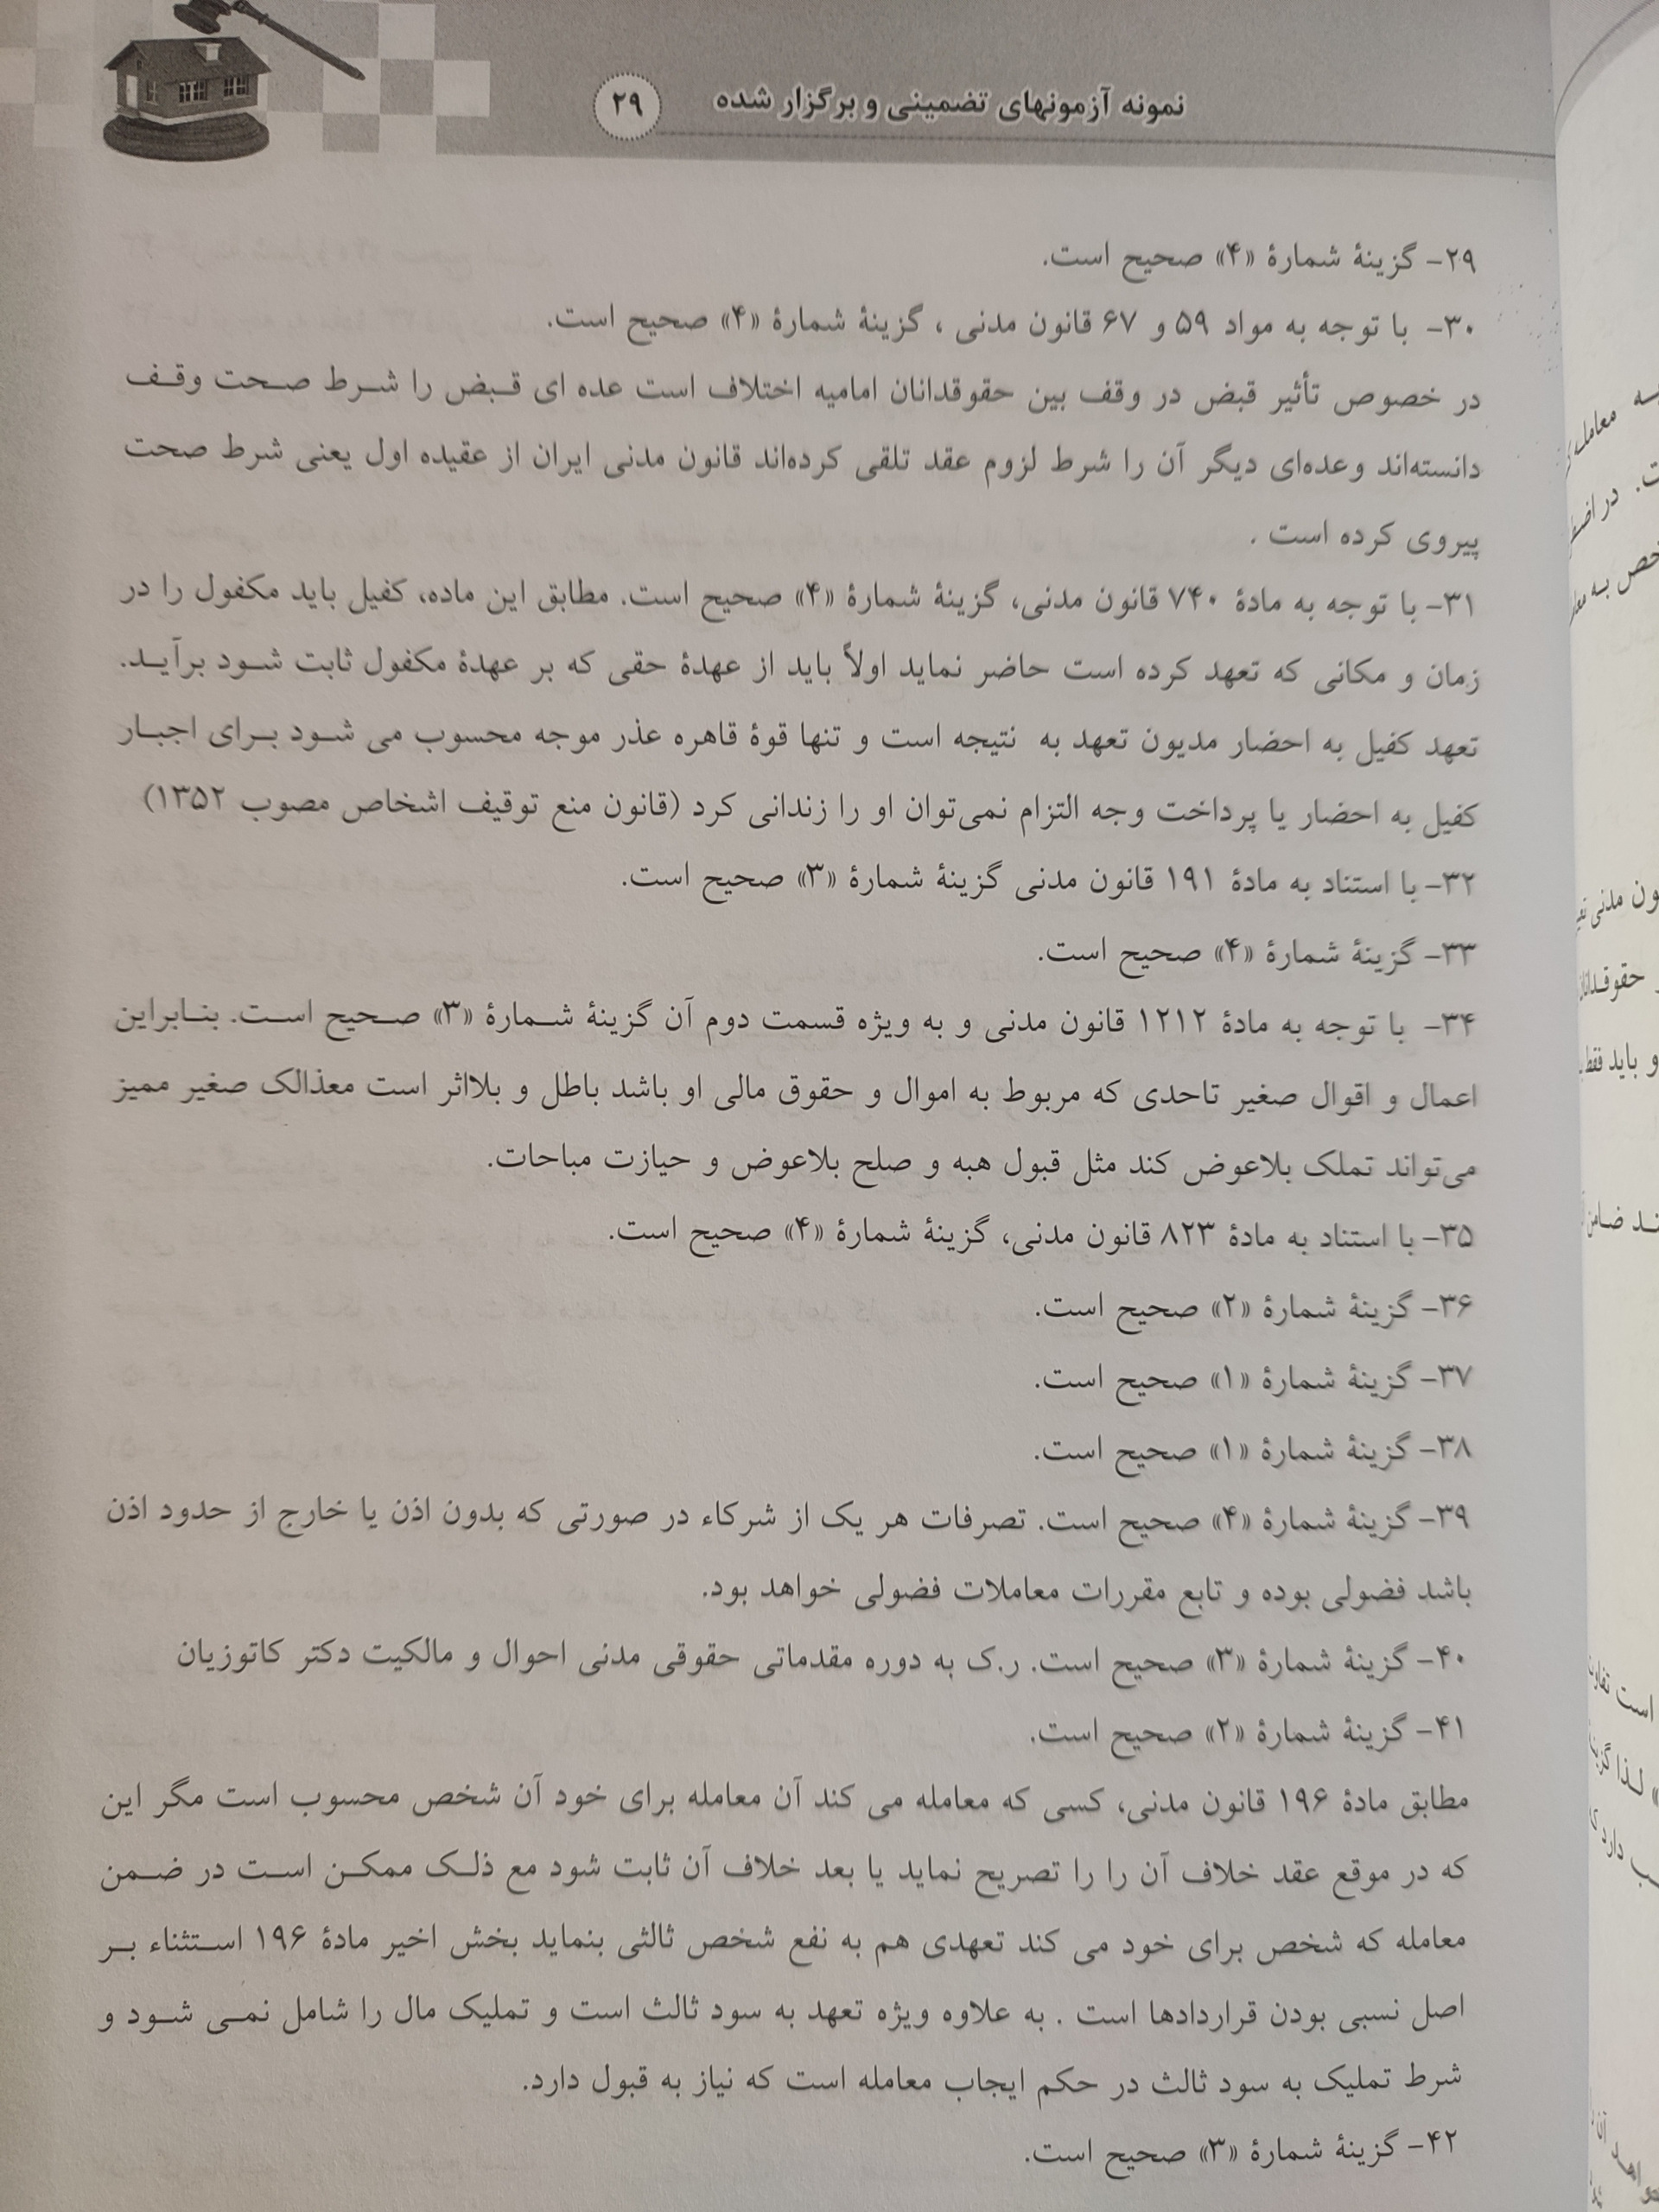 نمونه آزمونهای تضمینی و برگزار شده
۲۹
۲۹- گزینهٔ شمارهٔ «۴» صحیح است.
۳۰- با توجه به مواد ۵۹ و ۶۷ قانون مدنی ، گزینهٔ شمارهٔ «۴» صحیح است.
در خصوص تأثیر قبض در وقف بین حقوقدانان امامیه اختلاف است عده ای قبض را شرط صحت وقف
دانسته‌اند وعده‌ای دیگر آن را شرط لزوم عقد تلقی کرده‌اند قانون مدنی ایران از عقیده اول یعنی شرط صحت
پیروی کرده است .
۳۱- با توجه به مادهٔ ۷۴۰ قانون مدنی، گزینهٔ شمارهٔ «۴» صحیح است. مطابق این ماده، کفیل باید مکفول را در
زمان و مکانی که تعهد کرده است حاضر نماید اولاً باید از عهدهٔ حقی که بر عهدهٔ مکفول ثابت شود برآید.
تعهد کفیل به احضار مدیون تعهد به نتیجه است و تنها قوهٔ قاهره عذر موجه محسوب می شود برای اجبار
کفیل به احضار یا پرداخت وجه التزام نمی‌توان او را زندانی کرد (قانون منع توقیف اشخاص مصوب ۱۳۵۲)
۳۲- با استناد به مادهٔ ۱۹۱ قانون مدنی گزینهٔ شمارهٔ «۳» صحیح است.
۳۳- گزینهٔ شمارهٔ «۴» صحیح است.
۳۴- با توجه به مادهٔ ۱۲۱۲ قانون مدنی و به ویژه قسمت دوم آن گزینهٔ شمارهٔ «۳» صحیح است. بنابراین
اعمال و اقوال صغیر تاحدی که مربوط به اموال و حقوق مالی او باشد باطل و بلااثر است معذالک صغیر ممیز
می‌تواند تملک بلاعوض کند مثل قبول هبه و صلح بلاعوض و حیازت مباحات.
۳۵- با استناد به مادهٔ ۸۲۳ قانون مدنی، گزینهٔ شمارهٔ «۴» صحیح است.
۳۶- گزینهٔ شمارهٔ «۲» صحیح است.
۳۷- گزینهٔ شمارهٔ «۱» صحیح است.
۳۸- گزینهٔ شمارهٔ «۱» صحیح است.
۳۹- گزینهٔ شمارهٔ «۴» صحیح است. تصرفات هر یک از شرکاء در صورتی که بدون اذن یا خارج از حدود اذن
باشد فضولی بوده و تابع مقررات معاملات فضولی خواهد بود.
۴۰- گزینهٔ شمارهٔ «۳» صحیح است. ر.ک به دوره مقدماتی حقوقی مدنی احوال و مالکیت دکتر کاتوزیان
۴۱- گزینهٔ شمارهٔ «۲» صحیح است.
مطابق مادهٔ ۱۹۶ قانون مدنی، کسی که معامله می کند آن معامله برای خود آن شخص محسوب است مگر این
که در موقع عقد خلاف آن را را تصریح نماید یا بعد خلاف آن ثابت شود مع ذلک ممکن است در ضمن
معامله که شخص برای خود می کند تعهدی هم به نفع شخص ثالثی بنماید بخش اخیر مادهٔ ۱۹۶ استثناء بر
اصل نسبی بودن قراردادها است . به علاوه ویژه تعهد به سود ثالث است و تملیک مال را شامل نمی شود و
شرط تملیک به سود ثالث در حکم ایجاب معامله است که نیاز به قبول دارد.
۴۲- گزینهٔ شمارهٔ «۳» صحیح است.